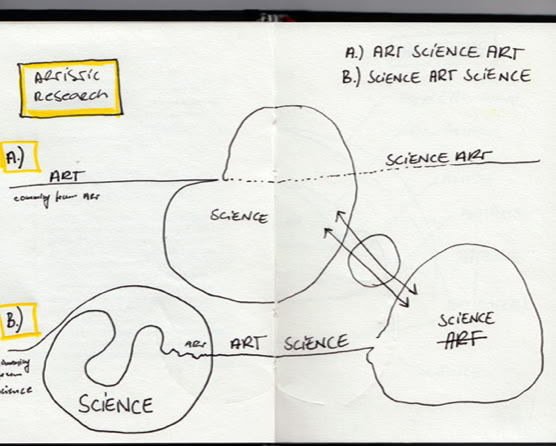 ARTISTIC
RESEARCH
A.) ART SCIENCE ART
B.) SCIENCE ART SCIENCE
A.)
ART
SCIENCE ART
coming from ART
SCIENCE
B.)
ART
ART
SCIENCE
SCIENCE
ART
coming
from
science
SCIENCE